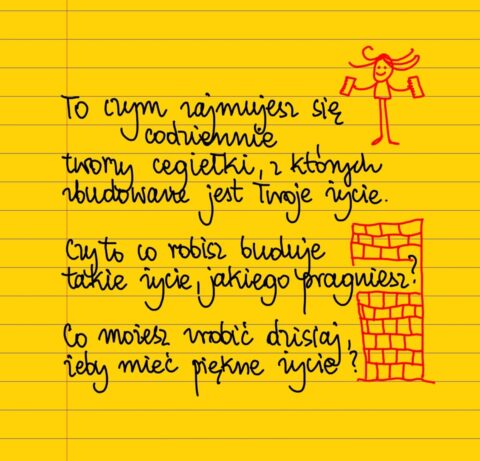 To czym zajmujesz się
codziennie
tworzy cegiełki, z których
zbudowane jest Twoje życie.
Czy to co robisz buduje
takie życie, jakiego pragniesz?
Co możesz zrobić dzisiaj,
żeby mieć piękne życie?